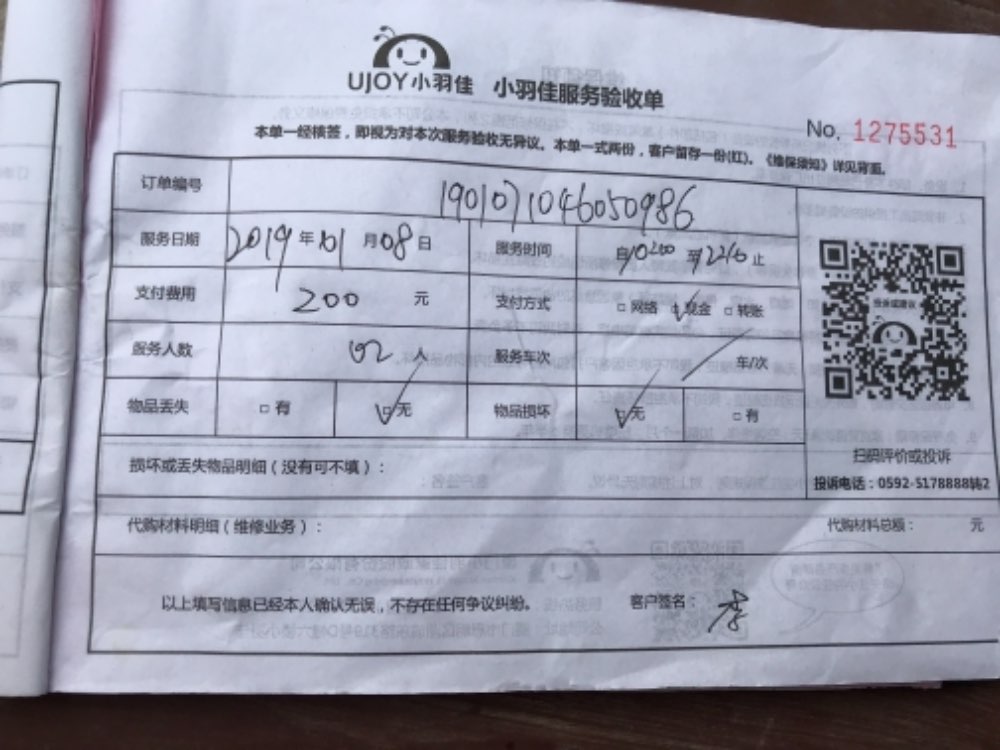 UJOY小羽佳 小羽佳服务验收单
No. 1275531
本单一经核签，即视为对本次服务验收无异议。本单一式两份，客户留存一份(红)。《维保须知》详见背面。
订单编号 1901071046050986
服务日期 2019年01月08日 服务时间 自 至 止
支付费用 200 元 支付方式 □网络 ☑现金 □转账
服务人数 02人 服务车次 / 车/次
物品丢失 □有 ☑无 物品损坏 ☑无 □有
扫码评价或投诉
损坏或丢失物品明细（没有可不填）：
投诉电话：0592-5178888转2
代购材料明细（维修业务）： 代购材料总额： 元
以上填写信息已经本人确认无误，不存在任何争议纠纷。 客户签名：李
投诉或建议